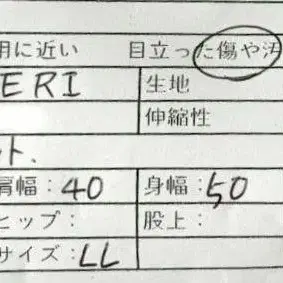 用に近い 目立った傷や汚
ERI 生地
伸縮性
ット、
肩幅：40 身幅：50
ヒップ： 股上：
サイズ：LL